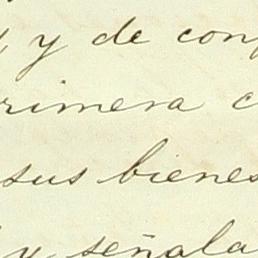 y de conf
rimera c
sus bienes
y señala